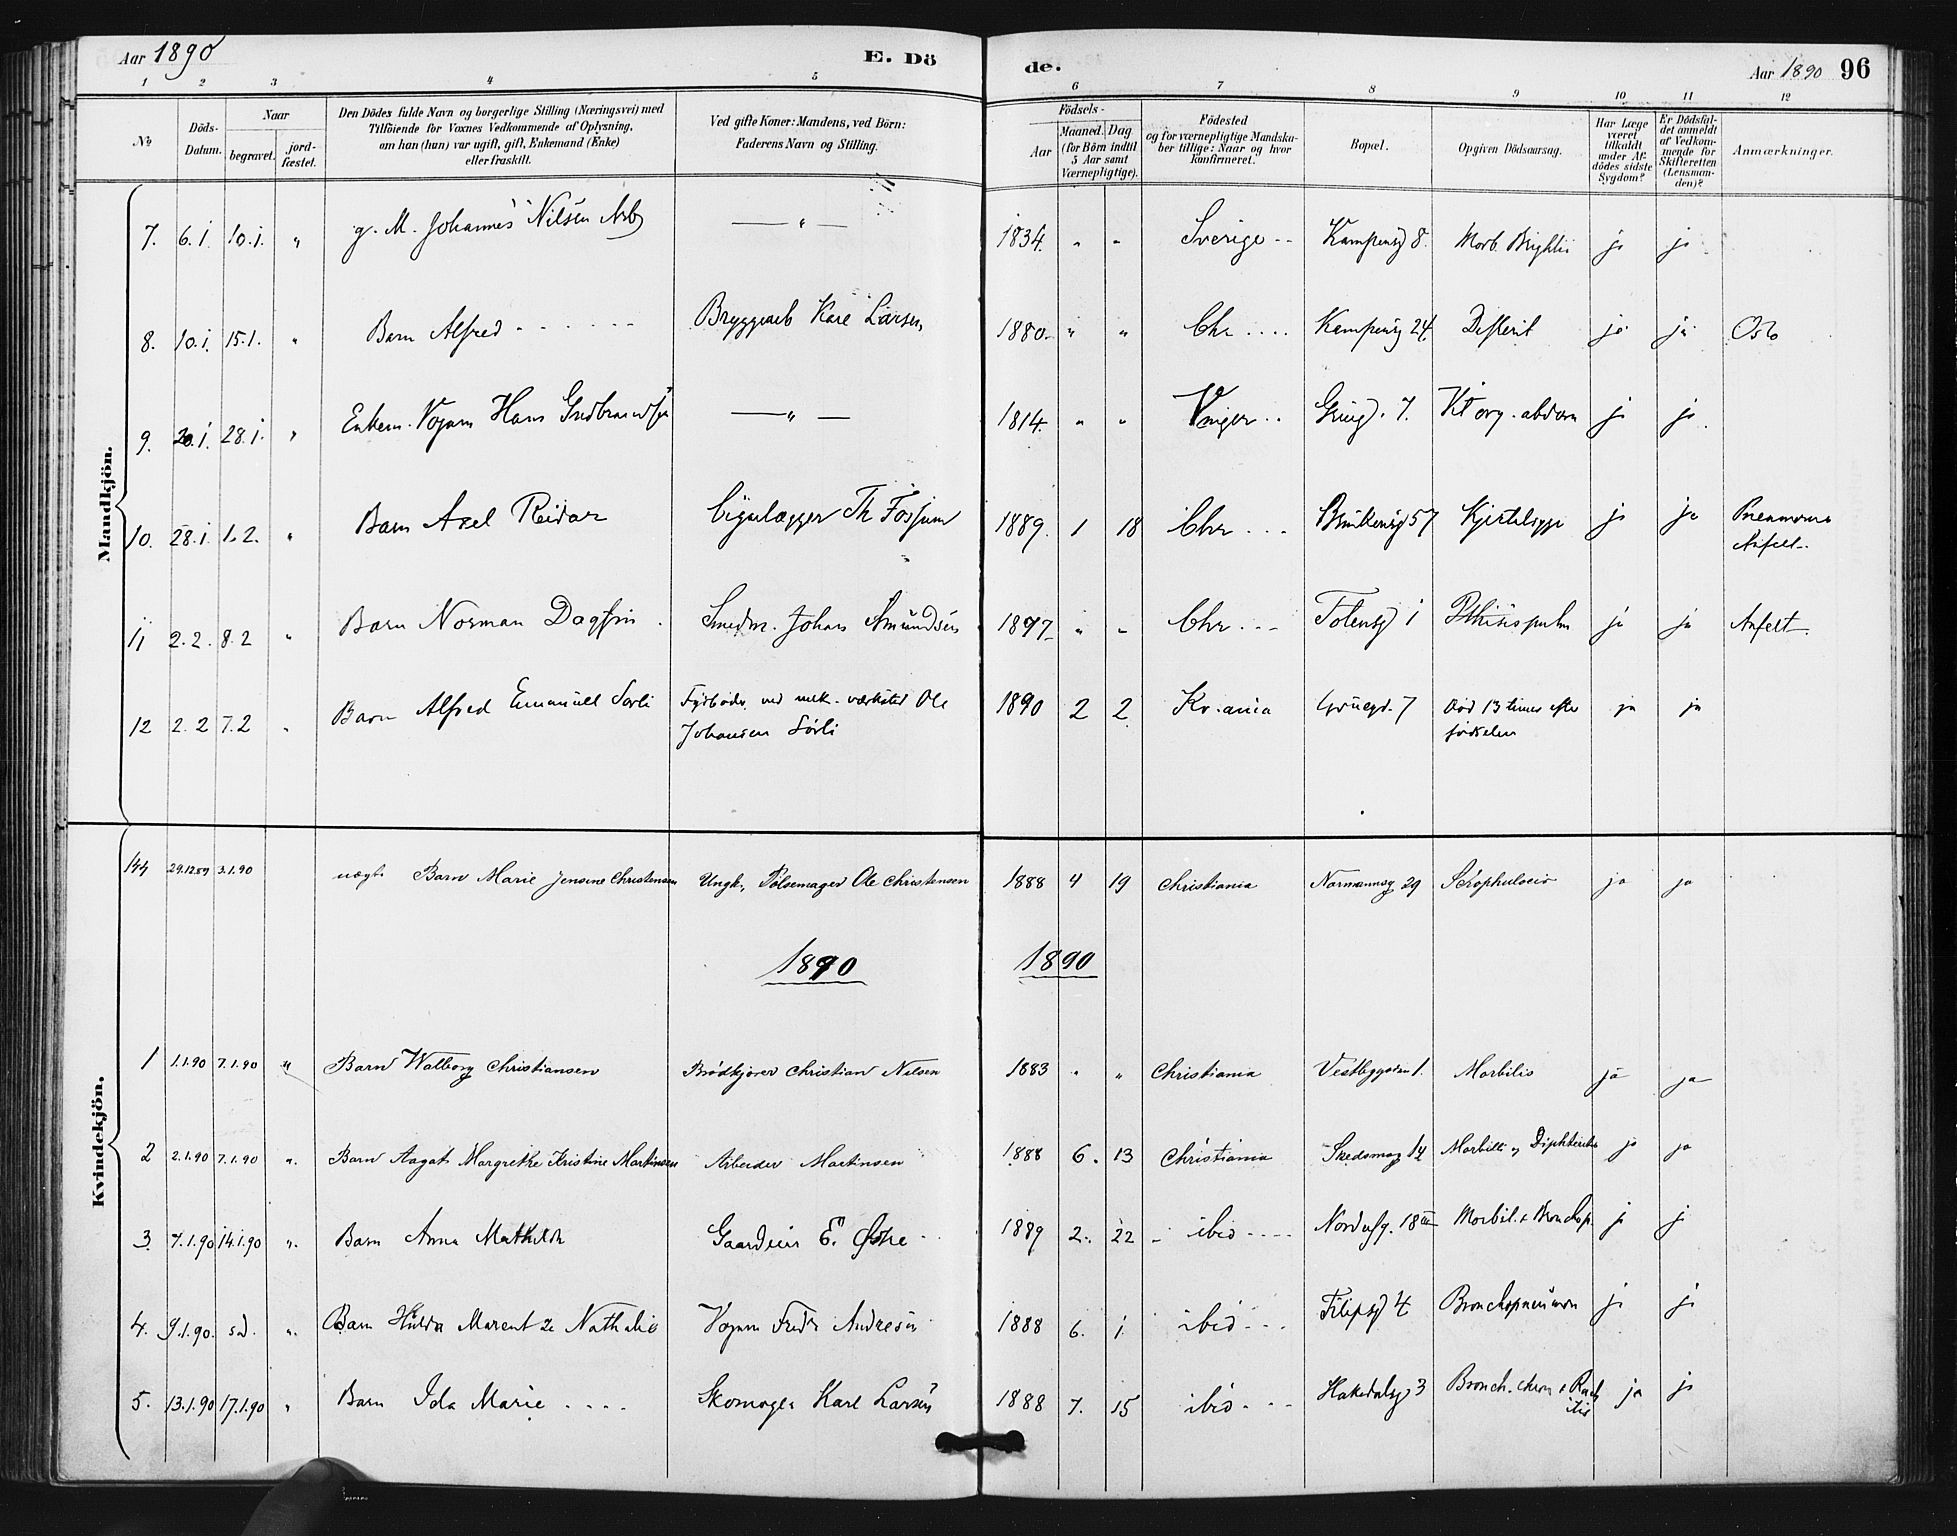 Aar 1890
E. Dö
de.
Aar 1890 96
1 2 3 4 5 6 7 8 9 10 11 12
No
Döds-
Datum.
Naar
begravet.
jord-
fæstet.
Den Dödes fulde Navn og borgerlige Stilling (Næringsvei) med
Tilföiende for Voxnes Vedkommende af Oplysning,
om han (hun) var ugift, gift, Enkemand (Enke)
eller fraskilt.
Ved gifte Koner: Mandens, ved Börn:
Faderens Navn og Stilling.
Födsels-
Aar
Maaned. Dag
(for Börn indtil
5 Aar samt
Værnepligtige).
Födested
og for værnepligtige Mandska-
ber tillige: Naar og hvor
konfirmeret.
Bopæl.
Opgiven Dödsaarsag.
Har Læge
været
tilkaldt
under Af-
dödes sidste
Sygdom?
Er Dödsfal-
det anmeldt
af Vedkom-
mende for
Skifteretten
(Lensman-
den)?
Anmærkninger.
Mandkjön.
7. 6.1. 10.1. " g. M. Johannes Nilsen Arb — " — 1834. " " Sverige -- Kampensg 8. Morb. Brightii ja ja
8. 10.1. 15.1. " Barn Alfred - - - - - - Bryggearb Karl Larsen 1880. " " Chr .... Kampensg 24. Difterit ja ja Oslo
9. 20.1. 28.1. " Enkem. Vognm Hans Gudbrandsen — " — 1814. " " .. 7. Vit org. abdom ja ja
10. 28.1. 1.2. " Barn Axel Reidar Th Fossum 1889. 1 18 Chr - - - 57 Kjertelsyge ja ja Pneumoni
Anfelt.
11 2.2. 8.2 " Barn Norman Dagfin Smedm. Johan Amundsen 1897 " " Chr - - - Tolensg 1 Pthisis pulm ja ja Anfelt.
12 2.2 7.2 " Barn Alfred Emanuel Sørli Fyrbøder ved mek. værksted Ole
Johansen Sørli
1890 2 2 Kr.ania Gruegd. 7 Død 13 timer efter
fødselen
ja ja
144 29.12.89 3.1.90 uægte Barn Marie Jensine Christensen Ungk, Pølsemager Ole Christensen 1888 4 19 Christiania Normannsg 29 Scrophulosis ja ja
1890
1890
Kvindekjön.
1 1.1.90 7.1.90 " Barn Walborg Christiansen Brødkjører Christian Nilsen 1883 " " Christiania 1. Morbilis ja ja
2 2.1.90 7.1.90 " Barn Aagot Margrethe Kristine Martinsen Arbeider Martinsen 1888 6. 13 Christiania Skedsmog 14 Morbilli og Diphterit ja ja
3. 7.1.90 14.1.90 ". Barn Anna Mathilde Gaardeier E. 1889 2. 22 - ibid - - - - 18 Morbil. & Bronchop. ja ja
4. 9.1.90. s.d. ". Barn Hilda Marentze Nathalie Vognm Fredr Andresen 1888 6. 1. ibid - - - Filipsg 4 Bronchopneumon ja ja
5. 13.1.90 17.1.90 " Barn Ida Marie - - - - Skomager Karl Larsen 1888 7. 15 ibid - - - Hakedalsg 3 Bronch. chron & Rach
itis
ja ja